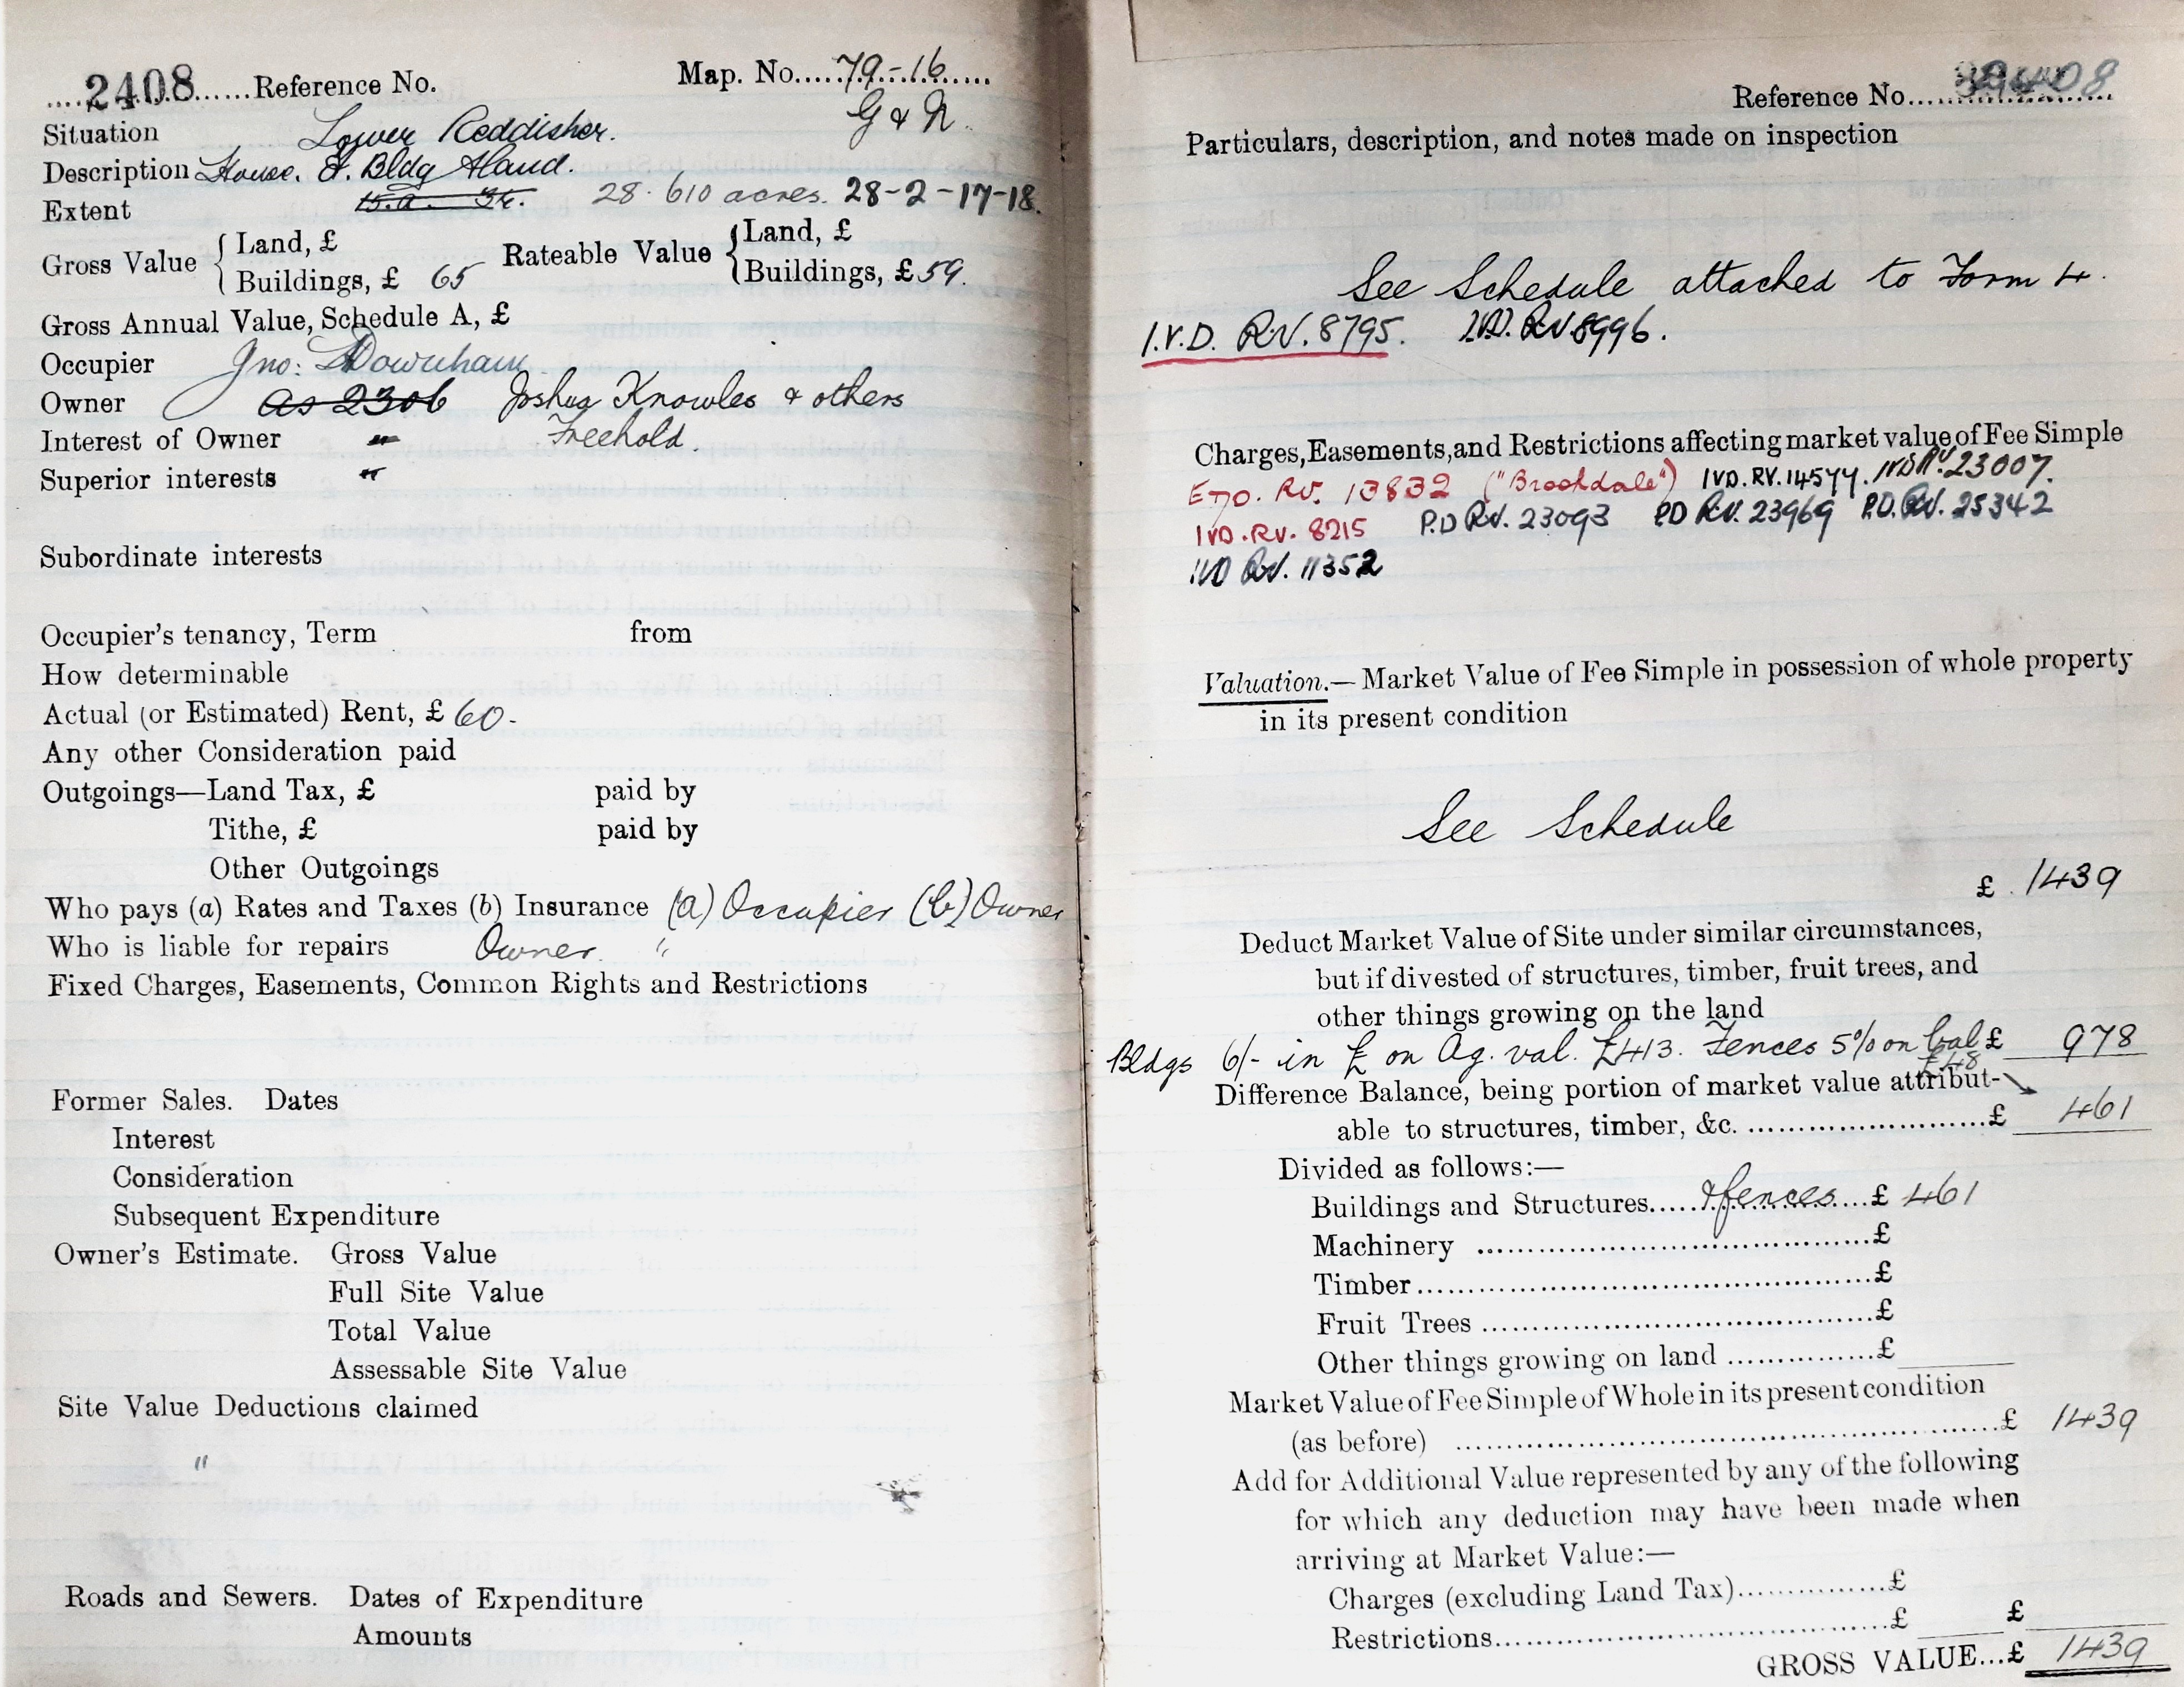 2408 Reference No. Map. No. 79-16
G & N.
Situation Lower Reddisher.
Description House. F. Bldg & land.
Extent 28.610 acres. 28-2-17-18.
Gross Value { Land, £
Buildings, £ 65
Rateable Value { Land, £
Buildings, £ 59.
Gross Annual Value, Schedule A, £
Occupier Jno: Downham
Owner as 2306 Joshua Knowles & others
Interest of Owner " Freehold.
Superior interests "
Subordinate interests
Occupier's tenancy, Term from
How determinable
Actual (or Estimated) Rent, £ 60.
Any other Consideration paid
Outgoings—Land Tax, £ paid by
Tithe, £ paid by
Other Outgoings
Who pays (a) Rates and Taxes (b) Insurance (a) Occupier (b) Owner
Who is liable for repairs Owner. "
Fixed Charges, Easements, Common Rights and Restrictions
Former Sales. Dates
Interest
Consideration
Subsequent Expenditure
Owner's Estimate. Gross Value
Full Site Value
Total Value
Assessable Site Value
Site Value Deductions claimed
"
Roads and Sewers. Dates of Expenditure
Amounts
Reference No. 2408
Particulars, description, and notes made on inspection
See Schedule attached to Form 4.
I.V.D. RV. 8795. I.V.D. RV 8996.
Charges, Easements, and Restrictions affecting market value of Fee Simple
RV. 13832 ("Brookdale") IVD. RV. 14577. IVD RV. 23007.
IVD. RV. 8215 P.D RV. 23093 PD RV. 23969 P.D. RV. 25342
IVD RV. 11352
Valuation.—Market Value of Fee Simple in possession of whole property
in its present condition
See Schedule
£ 1439
Deduct Market Value of Site under similar circumstances,
but if divested of structures, timber, fruit trees, and
other things growing on the land
Bldgs 6/- in £ on Ag. val. £413. Fences 5% on bal £ 978
£48
Difference Balance, being portion of market value attribut-
able to structures, timber, &c. £ 461
Divided as follows:—
Buildings and Structures & fences £ 461
Machinery £
Timber £
Fruit Trees £
Other things growing on land £
Market Value of Fee Simple of Whole in its present condition
(as before) £ 1439
Add for Additional Value represented by any of the following
for which any deduction may have been made when
arriving at Market Value:—
Charges (excluding Land Tax) £
Restrictions £ £
GROSS VALUE...£ 1439